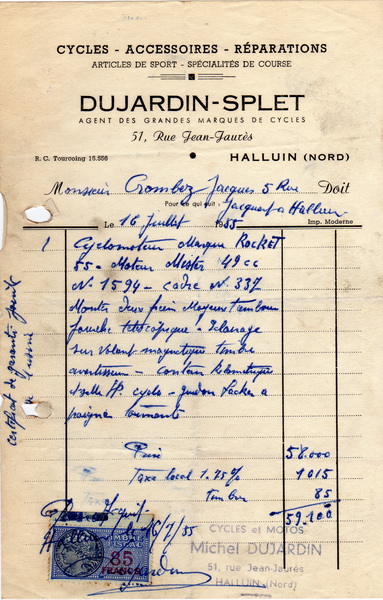 CYCLES - ACCESSOIRES - RÉPARATIONS
ARTICLES DE SPORT - SPÉCIALITÉS DE COURSE
DUJARDIN-SPLET
AGENT DES GRANDES MARQUES DE CYCLES
51, Rue Jean-Jaurès
R. C. Tourcoing 15.556
HALLUIN (NORD)
Monsieur Crombez Jacques 5 Rue Doit
Pour ce qui suit : Jacquart a Halluin
Le 16 Juillet 1955
Imp. Moderne
1 Cyclomoteur Marque ROCKET
55 - Moteur Mister 49 cc
N° 1594 - cadre N° 337
Monte deux frein Moyeux tambour
fourche télescopique - Eclairage
sur volant magnétique timbre
avertisseur - compteur kilométrique
selle cyclo - guidon
poignée tournante
certificat de garantie fournit
Prix 58.000
Taxe local 1.75% 1015
timbre 85
59.100
Pour Acquit
Halluin le 16/7/55
TIMBRE FISCAL
85
FRANCS
CYCLES et MOTOS
Michel DUJARDIN
51, rue Jean-Jaurès
HALLUIN (Nord)